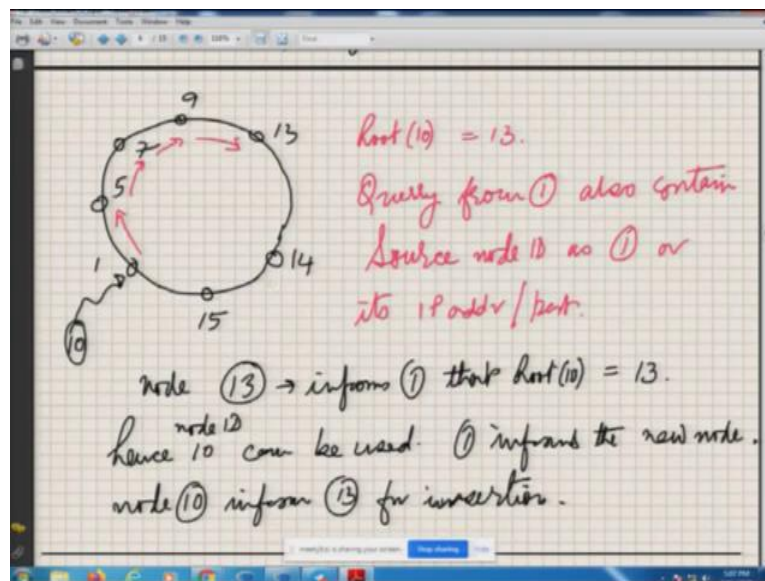 File Edit View Document Tools Window Help
9
7
13
5
1
14
15
10
Root(10) = 13.
Query from ① also contain
Source node ID as ① or
its IP addr/port.
node ⑬ → informs ① that Root(10) = 13.
node ID
hence 10 can be used. ① informs the new node.
node ⑩ inform ⑬ for insertion.
is sharing your screen. Stop sharing Hide
5:07 PM